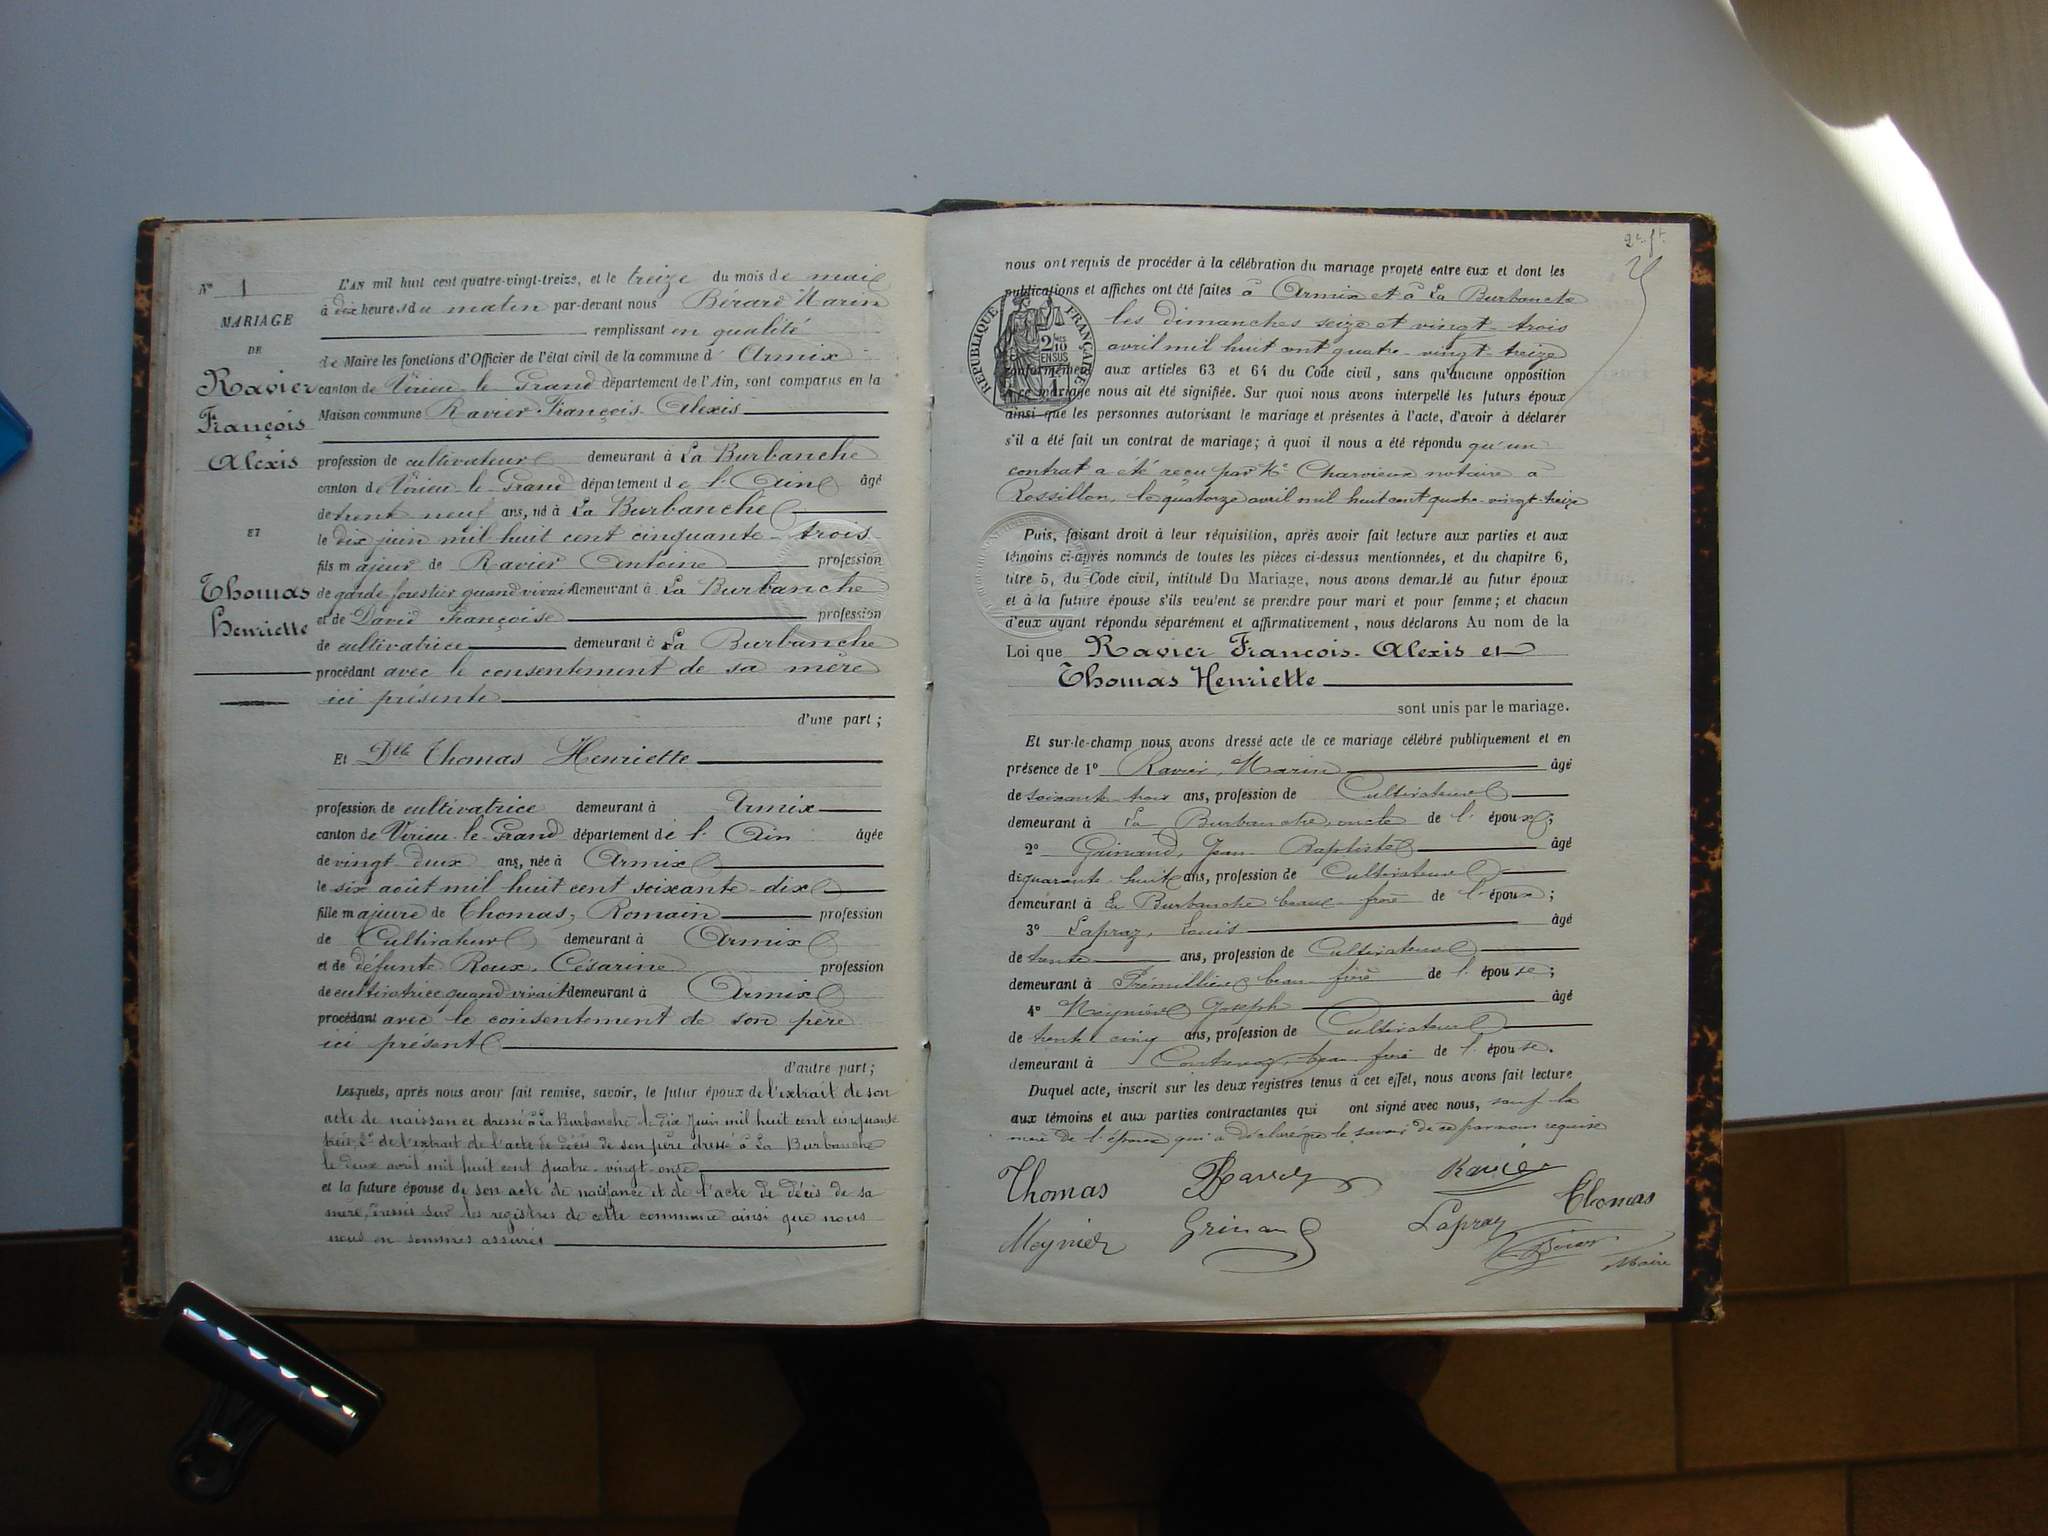 N° 1
MARIAGE
DE
Ravier
François
Alexis
ET
Thomas
Henriette
L'AN mil huit cent quatre-vingt-treize, et le treize du mois de mai
à dix heures du matin par-devant nous Bérard Marin
remplissant en qualité
de Maire les fonctions d'Officier de l'état civil de la commune d' Armix
canton de Virieu-le-Grand département de l'Ain, sont comparus en la
Maison commune Ravier François-Alexis
profession de cultivateur demeurant à La Burbanche
canton de Virieu-le-Grand département de l'Ain âgé
de trent neuf ans, né à La Burbanche
le dix juin mil huit cent cinquante-trois
fils majeur de Ravier Antoine profession
de garde forestier quand vivait demeurant à La Burbanche
et de David Françoise profession
de cultivatrice demeurant à La Burbanche
procédant avec le consentement de sa mère
ici présente
d'une part ;
Et Dlle Thomas Henriette
profession de cultivatrice demeurant à Armix
canton de Virieu-le-Grand département de l'Ain âgée
de vingt deux ans, née à Armix
le six août mil huit cent soixante-dix
fille majeure de Thomas, Romain profession
de Cultivateur demeurant à Armix
et de défunte Roux, Césarine profession
de cultivatrice quand vivait demeurant à Armix
procédant avec le consentement de son père
ici présent
d'autre part ;
Lesquels, après nous avoir fait remise, savoir, le futur époux de l'extrait de son
acte de naissance dressé à La Burbanche le dix Juin mil huit cent cinquante
trois, 2° de l'extrait de l'acte de décès de son père dressé à La Burbanche
le deux avril mil huit cent quatre-vingt-onze
et la future épouse de son acte de naissance et de l'acte de décès de sa
mère, dressés sur les registres de cette commune ainsi que nous
nous en sommes assurés
nous ont requis de procéder à la célébration du mariage projeté entre eux et dont les
publications et affiches ont été faites à Armix et à La Burbanche
les dimanches seize et vingt-trois
avril mil huit cent quatre-vingt-treize
RÉPUBLIQUE FRANÇAISE
2/10 EN SUS
conformément aux articles 63 et 64 du Code civil, sans qu'aucune opposition
à ce mariage nous ait été signifiée. Sur quoi nous avons interpellé les futurs époux
ainsi que les personnes autorisant le mariage et présentes à l'acte, d'avoir à déclarer
s'il a été fait un contrat de mariage ; à quoi il nous a été répondu qu'un
contrat a été reçu par Me Charvieux notaire à
Rossillon, le quatorze avril mil huit cent quatre-vingt-treize
Puis, faisant droit à leur réquisition, après avoir fait lecture aux parties et aux
témoins ci-après nommés de toutes les pièces ci-dessus mentionnées, et du chapitre 6,
titre 5, du Code civil, intitulé Du Mariage, nous avons demandé au futur époux
et à la future épouse s'ils veulent se prendre pour mari et pour femme ; et chacun
d'eux ayant répondu séparément et affirmativement, nous déclarons Au nom de la
Loi que Ravier François-Alexis et
Thomas Henriette
sont unis par le mariage.
Et sur-le-champ nous avons dressé acte de ce mariage célébré publiquement et en
présence de 1° Ravier, Marin âgé
de soixante-trois ans, profession de Cultivateur
demeurant à La Burbanche, oncle de l'époux ;
2° Grinand, Jean-Baptiste âgé
de quarante-huit ans, profession de Cultivateur
demeurant à La Burbanche beau-frère de l'époux ;
3° Lapraz, Louis âgé
de trente ans, profession de Cultivateur
demeurant à Prémillieu beau-frère de l'épouse ;
4° Meynier Joseph âgé
de trente cinq ans, profession de Cultivateur
demeurant à Contrevoz, beau-frère de l'épouse.
Duquel acte, inscrit sur les deux registres tenus à cet effet, nous avons fait lecture
aux témoins et aux parties contractantes qui ont signé avec nous, sauf la
mère de l'époux qui a déclaré ne le savoir de ce par nous requise
Thomas Ravier Thomas
Meynier Grinand Lapraz
Maire